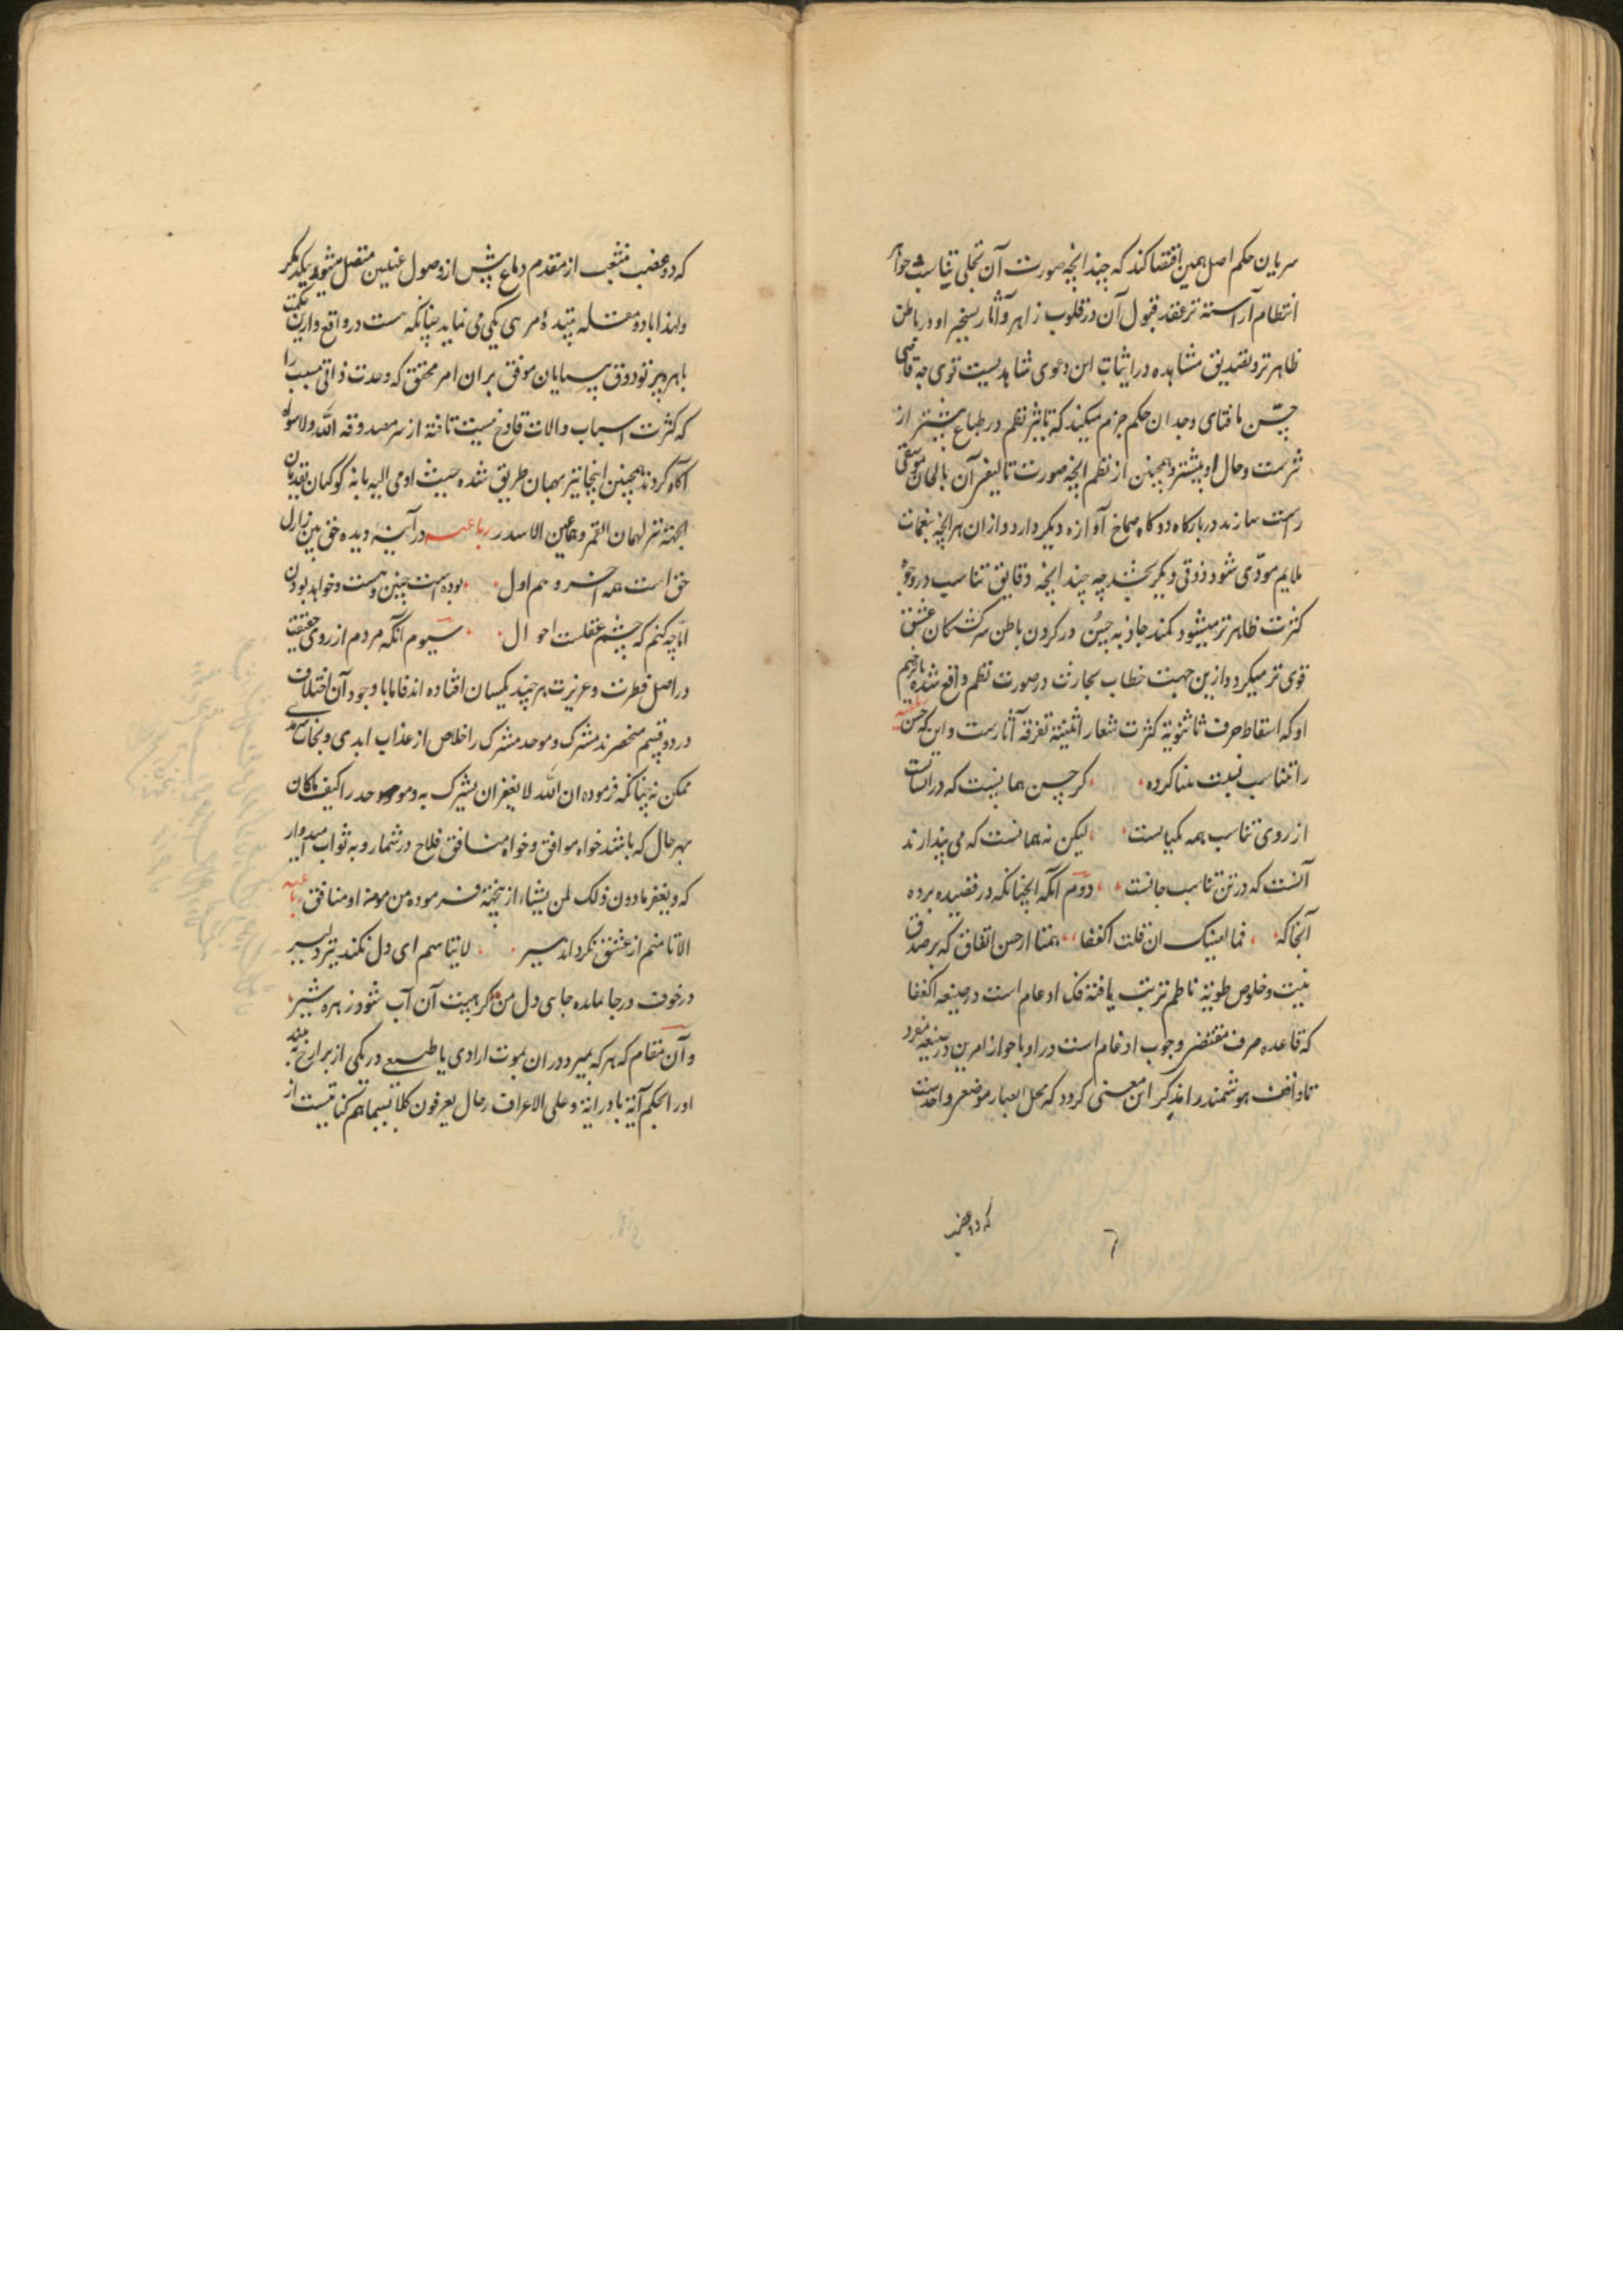 سریان حکم اصل همین اقتضا کند که چندانچه صورت آن تجلی بتناسب
انتظام آراسته تر عقد قبول آن در قلوب زاهر و آثار تسخیر او در باطن
ظاهرتر و تصدیق مشاهده در اثبات این دعوی شاهدیست قوی چه قاضی
حس بافتای وجدان حکم جزم میکند که تاثیر نظم در طباع بیشتر از
نثرست و حال او بیشتر و همچنین از نظم انچه صورت تالیفی آن بالحان موسیقی
راست سازند در بارکاه دوکاه صماخ آوازه دیکر دارد و از ان هر انچه بنغمات
ملایم مودّی شود ذوقی دیکر بخشد چه چندانچه دقایق تناسب در وجوه
کثرت ظاهرتر میشود کمند جاذبه حسن در کردن باطن سرکشتکان عشق
قوی تر میکردد و ازین جهت خطاب بحارث در صورت نظم واقع شده
او که اسقاط حرف ثا ثنویة کثرت شعار اثنینیة تفرقه آثارست و این که حسن
را تناسب نسبت بنا کرده کر حسن همانیست که در انسانست
از روی تناسب همه یکیاست لیکن نه همانست که می پندارند
آنست که در تن تناسب جانست دوم آنکه انچنانکه در قصیده برده
آنجا که فما لعینیک ان قلت اکففا همتا از حسن اتفاق که بر صدق
نیت و خلوص طویة ناظم ترتب یافتة فک ادغام است در صیغه اکففا
که قاعده صرف مقتضی وجوب ادغام است در او با جواز امرین در صیغه مفرد
تا واقف هوشمند را مذکر این معنی کردد که محل ابصار موضعی واحدست
که دو عصب
که دو عصب منشعب از مقدم دماغ پیش از وصول عینین متصل میشود بیکدیکر
و لهذا با دو مقله مر ئی یکی می نماید چنانکه هست در واقع و ازین نکت
با هر دو ذوق پیمایان موفق بر ان امر محقق که وحدت ذاتی مسبب را
که کثرت اسباب و الات قادح نیست تافتة از سر صدوقه الله ولا سواه
آکاه کردند همچنین اینجا نیز بهمان طریق شده حیث اومی الیه بانه
رباعیه در آینه دیده حق بین ز ازل
حق است همه آخر و هم اول بوده است چنین و هست و خواهد بودن
امّا چه کنم که چشم عقلست احول سیوم آنکه مردم از روی حقیقت
در اصل فطرت و عزیزت هر چند یکسان افتاده اند فاما با وجود آن اختلاف
در دو قسم منحصرند مشرک و موحد مشرک را خلاص از عذاب ابدی و نجات سرمدی
ممکن نه چنانکه فرموده ان الله لا یغفر ان یشرک به و موحد را کیف ماکان
بهر حال که باشد خواه موافق و خواه منافق فلاح در شمار و به ثواب امیدوار
که و یغفر مادون ذلک لمن یشاء از ینجهة فرموده من مومن او منافق رباعیه
الا تا منم از عشق نکرداند سیر لایتاهم ای دل نکند تیر دلیر
در خوف و رجا مانده جای دل من کز هیبت آن آب شود زهره شیر
و آن مقام که هر که بمیرد در ان بموت ارادی یا طبیعی در یکی از برازخ
اورا بحکم آیة و علی الاعراف رجال یعرفون کلا بسیماهم کنایتیست از